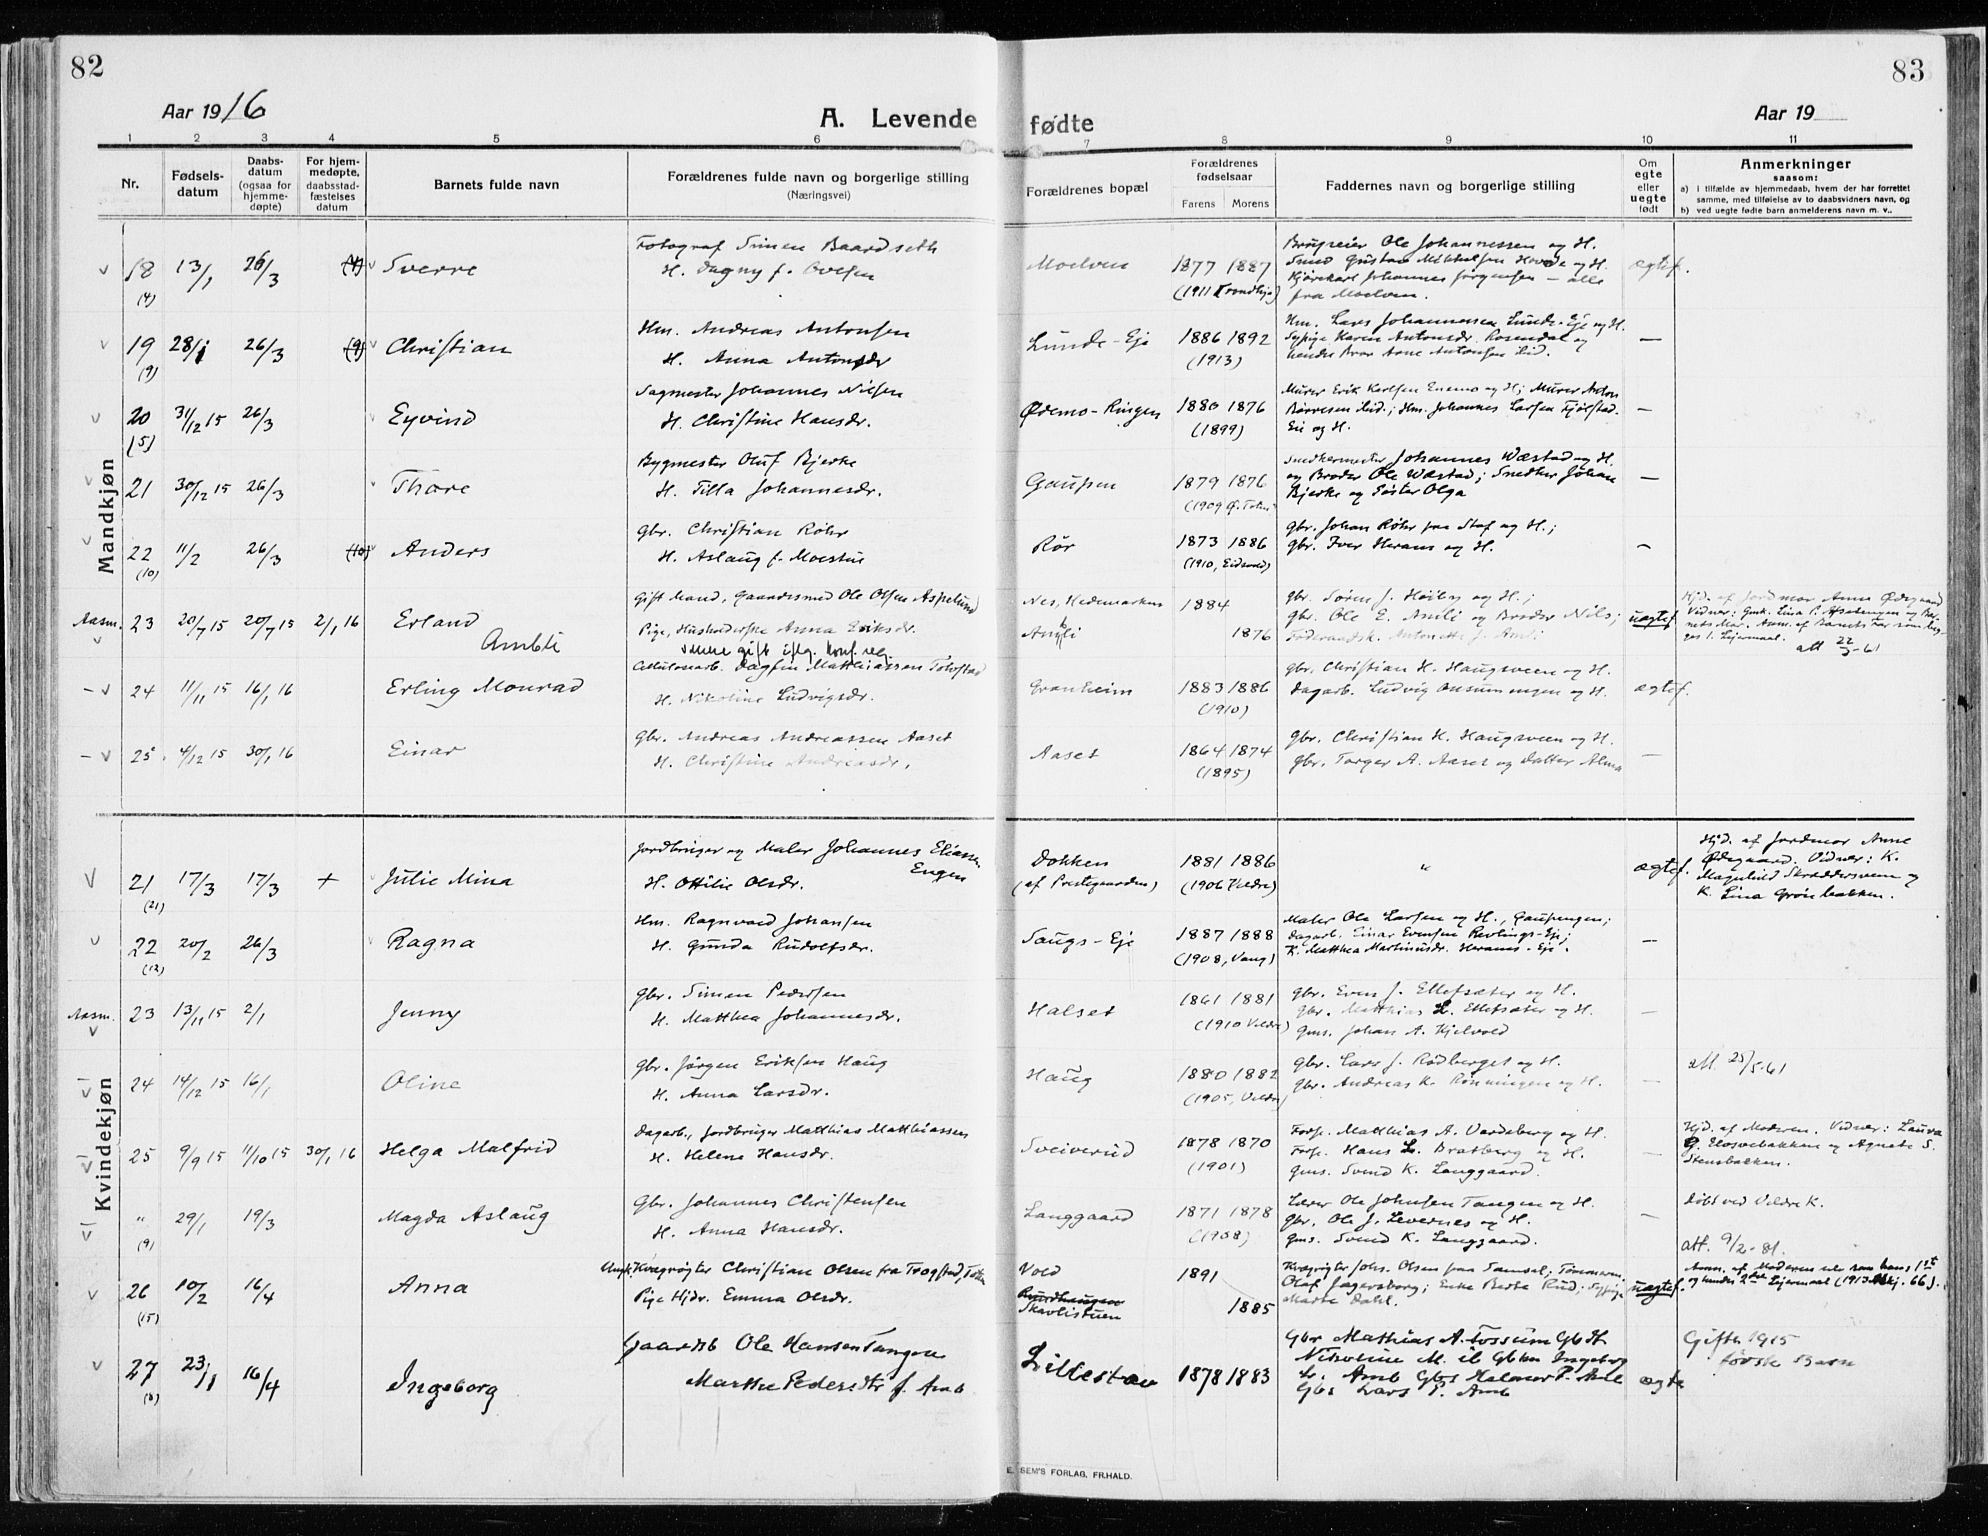 82
83
Aar 1916
A. Levende fødte
Aar 19
1 2 3 4 5 6 7 8 9 10 11
Nr.
Fødsels-
datum
Daabs-
datum
(ogsaa for
hjemme-
døpte)
For hjem-
medøpte,
daabsstad-
fæstelses
datum
Barnets fulde navn
Forældrenes fulde navn og borgerlige stilling
(Næringsvei)
Forældrenes bopæl
Forældrenes
fødselsaar
Farens Morens
Faddernes navn og borgerlige stilling
Om
egte
eller
uegte
født
Anmerkninger
saasom:
a) i tilfælde av hjemmedaab, hvem der har forrettet
samme, med tilføielse av to daabsvidners navn, og
b) ved uegte fødte barn anmelderens navn m. v..
Mandkjøn
18 13/1 26/3 (4) Sverre
(4)
Fotograf Simen Baardseth
H. Dagny f. Ovesen
Moelven
1877 1887
(1911 Trondhje)
Brugseier Ole Johannessen og H.
Smed Gustav Mikkelsen Hovde og H.
Kjørekarl Johannes Jørgensen – alle
fra Moelven.
ægtef.
19 28/1 26/3 (9) Christian
(9)
Hm. Andreas Antonsen
H. Anna Antonsdr
Lunde-Eje
1886 1892
(1913)
Hm. Lars Johannessen Lunde-Eje og H.
Sypige Karen Antonsdr. Rosendal og
hendes Bror Arne Antonsen ibid.
—
20 31/12 15 26/3 Eyvind
(5)
Sagmester Johannes Nilsen
H. Christine Hansdr.
Ødemo-Ringen
1880 1876
(1899)
Murer Erik Karlsen Enemo og H; Murer Anton
Børresen ibid.; Hm. Johannes Larsen Fjørstad-
Eie og H.
—
21 30/12 15 26/3 Thore
Bygmester Oluf Bjerke
H. Tilla Johannesdr.
Gaupen
1879 1876
(1909 Ø. Toten)
Snedkermester Johannes Wæstad og H.
og Broder Ole Wæstad; Snedker Johan
Bjerke og Søster Olga
—
22 11/2 26/3 (10) Anders
(10)
Gbr. Christian Röhr
H. Aslaug f. Moestue
Rör
1873 1886
(1910, Eidsvold)
Gbr. Johan Röhr paa Staf og H.;
Gbr. Iver Heram og H.
—
Aasm. 23 20/7 15 20/7 15 2/1 16 Erland
Ambli
Gift Mand, Gaardssmed Ole Olsen Aspelund
Pige, Husholderske Anna Eriksdr.
senere gift iflg. konf. reg.
Nes, Hedemarken
Ambli
1884
1876
Gbr. Søren J. Høiby og H.;
Gbr. Ole E. Amli og Broder Nils;
Föderaadsk. Antonette J. Amli
uægtef.
Hjd. af Jordmor Anna Ødegaard
att 22/3-61
24 11/11 15 16/1 16 Erling Monrad
Cellulosearb. Dagfin Matthiassen Tolvstad
H. Nikoline Ludvigsdr.
Granheim
1883 1886
(1910)
Gbr. Christian H. Haugsveen og H.
Dagarb. Ludvig Onsumengen og H.
ægtef.
25 4/12 15 30/1 16 Einar
Gbr. Andreas Andreassen Aaset
H. Christine Andreasdr.
Aaset
1864 1874
(1895)
Gbr. Christian H. Haugsveen og H.
Gbr. Torger A. Aaset og Datter Alma
—
Kvindekjøn
21 17/3 17/3 + Julie Mina
(21)
Jordbruger og Maler Johannes Eliassen
Engen
H. Ottilie Olsdr.
Dokken
(af Prestegaarden)
1881 1886
(1906 Veldre)
"
ægtef.
Hjd. af Jordmor Anne
Ødegaard. Vidner: K.
Magnhild Skræddersveen og
K. Lina Grönbakken.
22 20/2 26/3 Ragna
(12)
Hm. Ragnvald Johansen
H. Gunda Rudolfsdr.
Saugs-Eje
1887 1888
(1908, Vang)
Maler Ole Larsen og H., Gaupengen;
Dagarb. Einar Evensen Revlings-Eje;
K. Matthea Martinusdr. Herams-Eje.
—
Aasm. 23 13/11 15 2/1 Jenny
Gbr. Simen Pedersen
H. Matthea Johannesdr.
Halset
1861 1881
(1910 Veldre)
Gbr. Even J. Ellefsæter og H.
Gbr. Matthias L. Ellefsæter og H.
Gms. Johan A. Kjelvold
—
24 14/12 15 16/1 Oline
Gbr. Jørgen Eriksen Haug
H. Anna Larsdr.
Haug
1880 1882
(1905, Veldre)
Gbr. Lars J. Rødberget og H.
Gbr. Andreas K. Rønningen og H.
—
att. 25/5-61
25 9/9 15 11/10 15 30/1 16 Helga Malfrid
Dagarb., Jordbruger Matthias Matthiassen
H. Helene Hansdr.
Sveiverud
1878 1870
(1901)
Forp. Matthias A. Vardeberg og H.
Forp. Hans L. Bratberg og H.
Gms. Svend K. Langgaard.
—
Hjd. af Moderen. Vidner: Laura
G. Elosvebakken og Agnete S.
Stensbakken.
" 29/1 19/3 Magda Aslaug
(9)
Gbr. Johannes Christensen
H. Anna Hansdr.
Langgaard
1871 1878
(1908)
Lærer Ole Johnsen Tangen og H.
Gbr. Ole J. Levernes og H.
Gms. Svend K. Langgaard.
—
Döbt ved Veldre K.
att. 9/2-81.
26 10/2 16/4 Anna
(15)
Ungk. Kvægrøgter Christian Olsen fra Trogstad, Toten
Pige Hjdr. Emma Olsdr.
Vold
Skavlistuen
1891
1885
Kvægrøgter Johs. Olsen paa Samsal; Tömmerm.
Olaf Jagersborg; Enke Berte Rud; Sypige
Marte Dahl.
uægtef.
Anm. af Moderen selv som hans 1st
og hendes 2det Lejermaal (1913 Mkj. 66).
27 23/1 16/4 Ingeborg
(8)
Gaardsb Ole Hansen Tangen
Marthe Pedersdtr f. Amb
Lillestav
1878 1883
Gbr Mathias A. Fossum Gb H
Nicoline M. ib Gbken Ingeborg
L. Amb Gbs Halvor P. Amb
Gbs Lars P. Amb
ægte
Gifte 1915
første Barn
E. SEM'S FORLAG, FR.HALD.